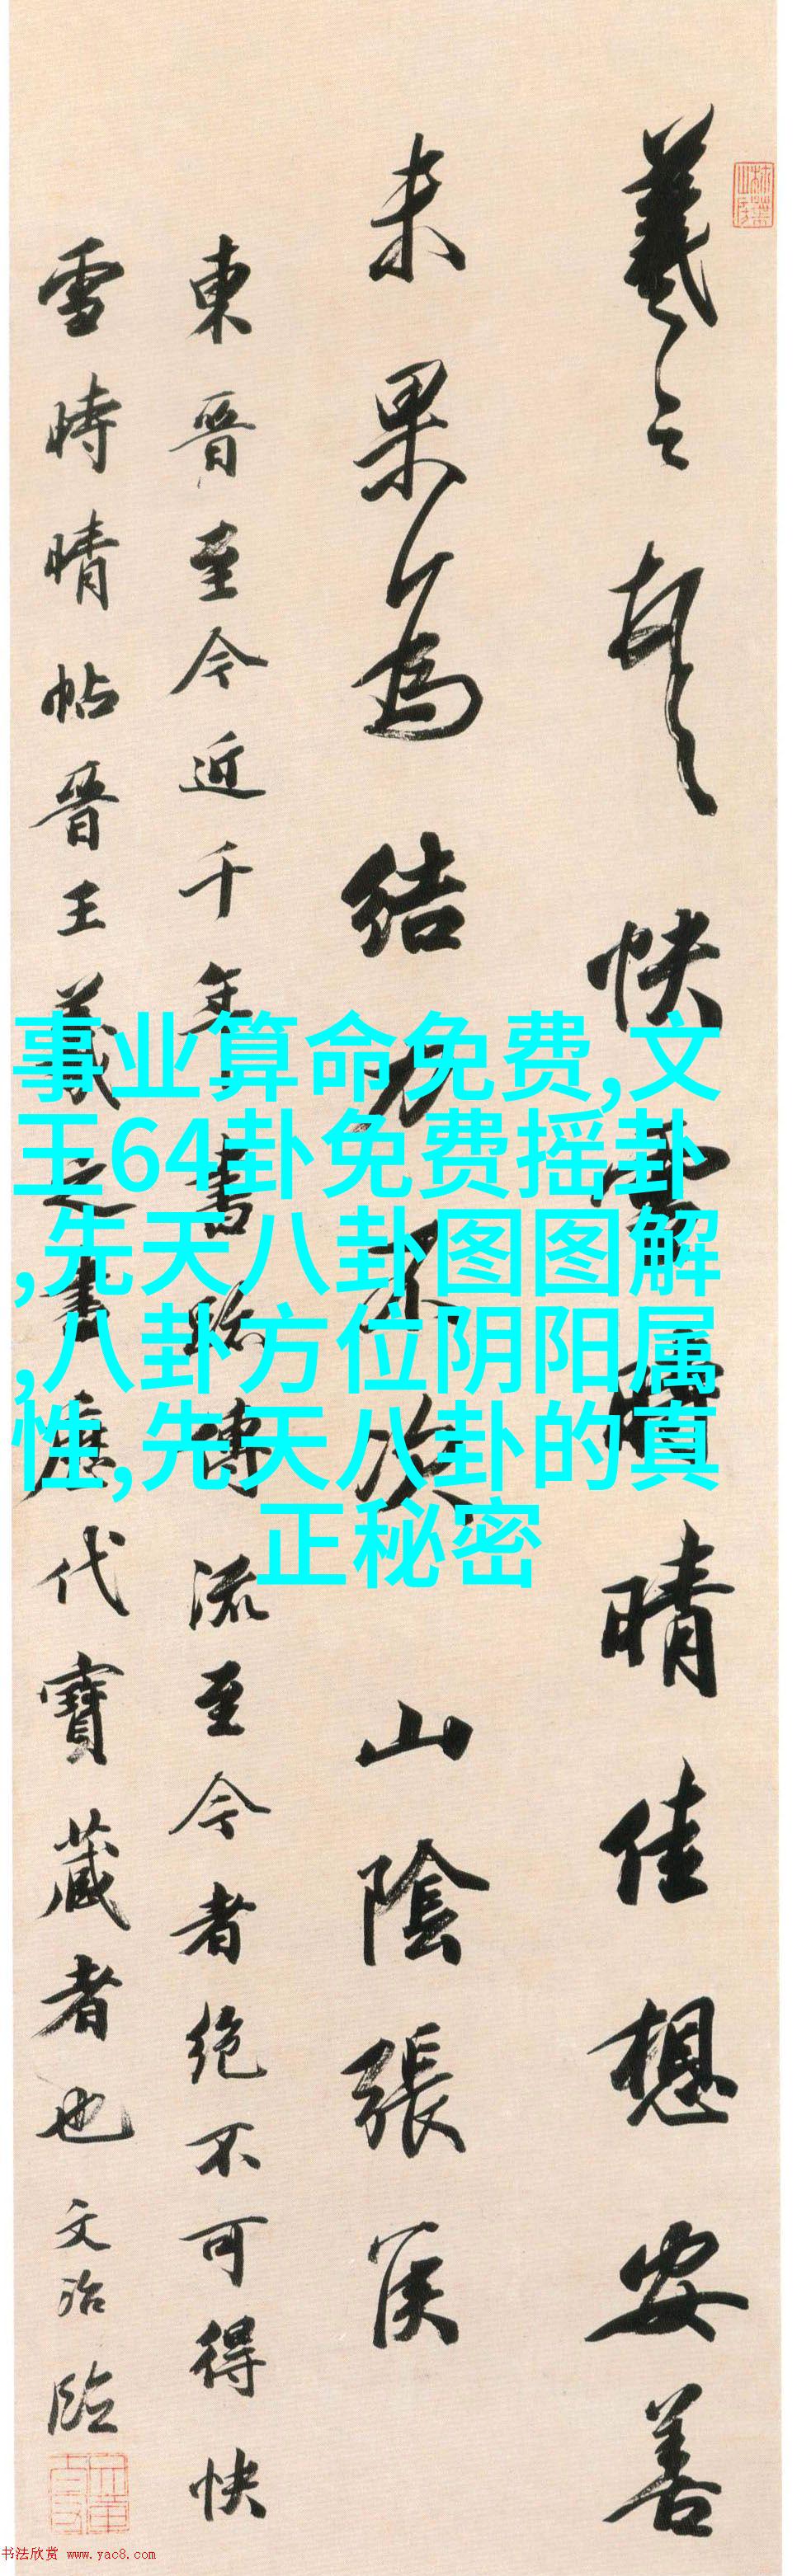 羲之頓首快雪時晴佳想安善
未果為結力不次山陰張侯
東晉至今近千年書跡傳流至今者絕不可得快
雪時晴帖晉王羲之書歷代寶藏者也文治臨
事业算命免费,文
王64卦免费摇卦
,先天八卦图图解
,八卦方位阴阳属
性,先天八卦的真
正秘密
书法欣赏 www.yac8.com